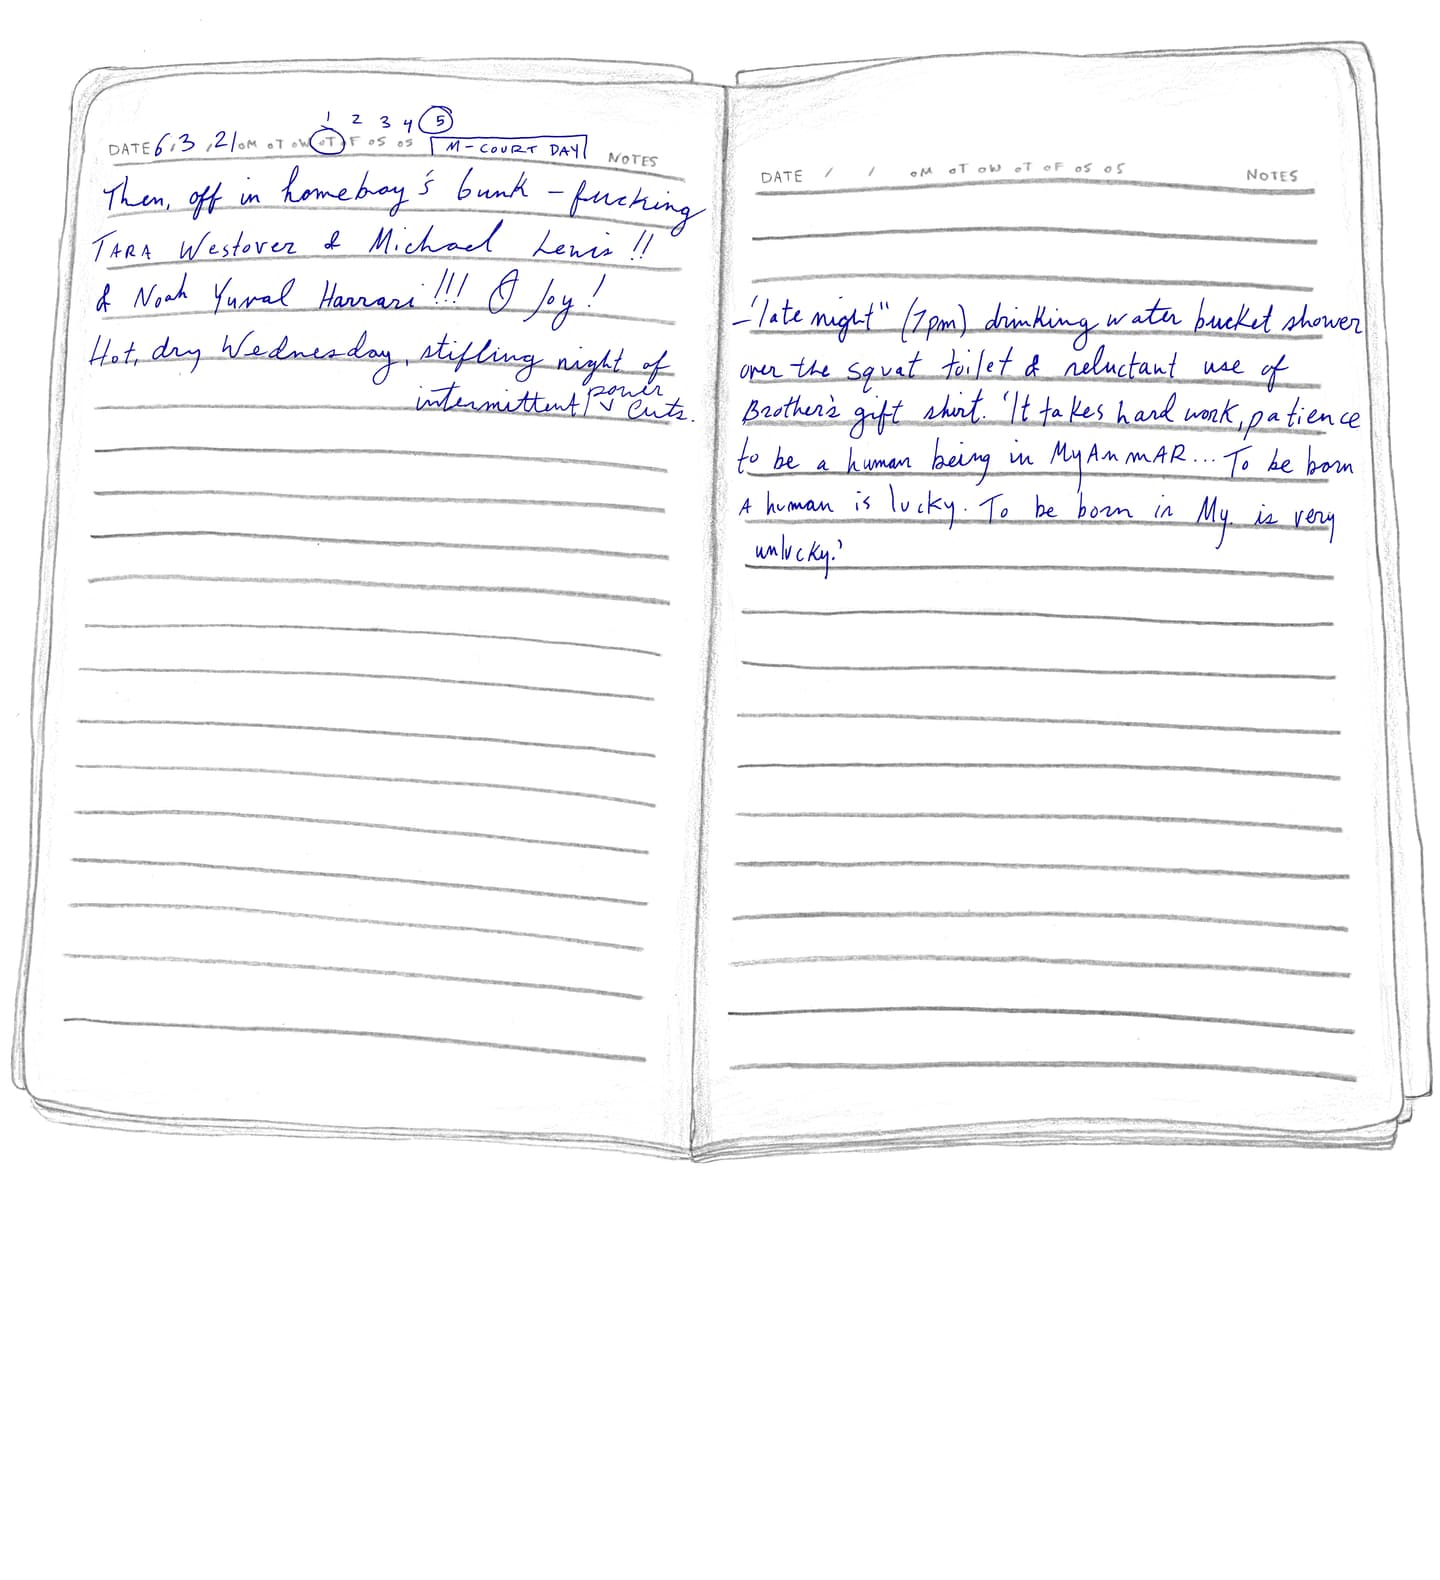 1 2 3 4 5
DATE 6,3,21 oM oT oW oT oF oS oS M-COURT DAY NOTES
Then, off in homeboy's bunk – fucking
TARA Westover & Michael Lewis!!
& Noah Yuval Harrari!!! O Joy!
Hot, dry Wednesday, stifling night of
intermittent power cuts.
DATE / / oM oT oW oT oF oS oS NOTES
– 'late night" (7pm) drinking water bucket shower
over the squat toilet & reluctant use of
Brother's gift shirt. 'It takes hard work, patience
to be a human being in MyAnmAR... To be born
A human is lucky. To be born in My. is very
unlucky.'